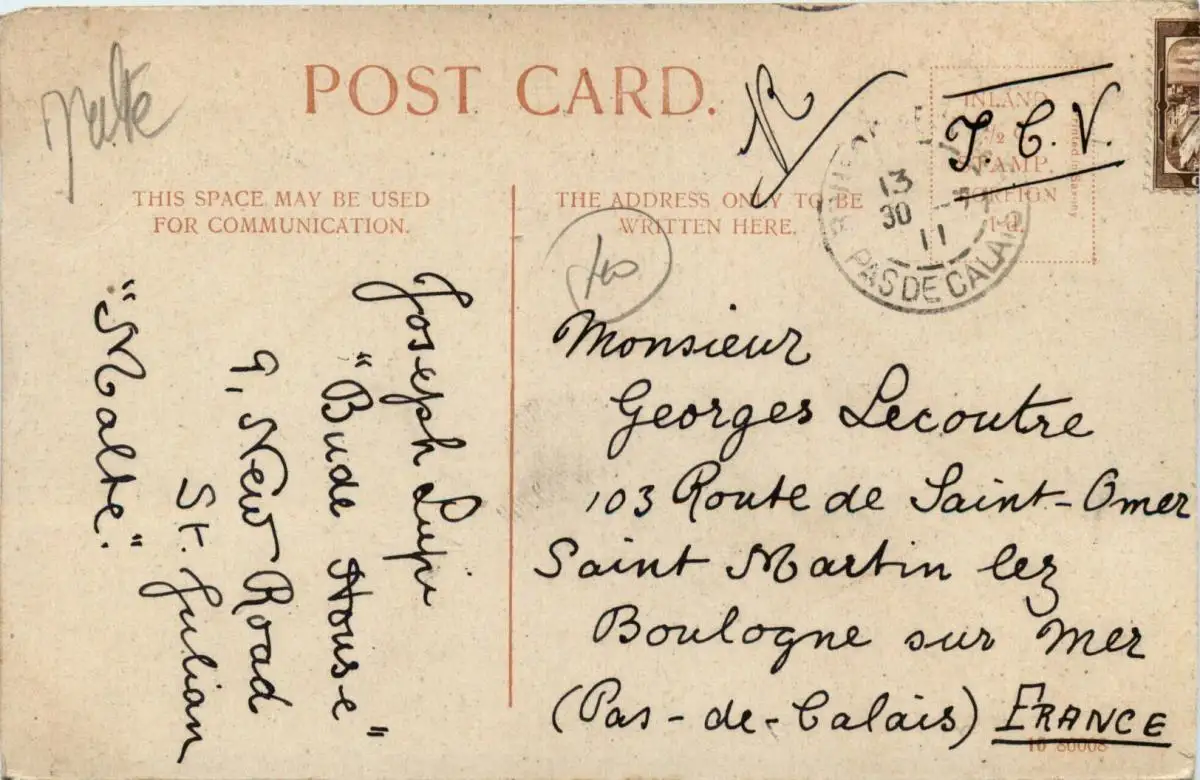 Malte
POST CARD.
THIS SPACE MAY BE USED
FOR COMMUNICATION.
THE ADDRESS ONLY TO BE
WRITTEN HERE.
INLAND
½
STAMP.
FOREIGN
1d.
T. C. V.
13
30
11
PAS DE CALAIS
Joseph Lupi
"Bude House"
9, New Road
St. Julian
"Malte."
Monsieur
Georges Lecoutre
103 Route de Saint-Omer
Saint Martin lez
Boulogne sur Mer
(Pas-de-Calais) FRANCE
10 80008